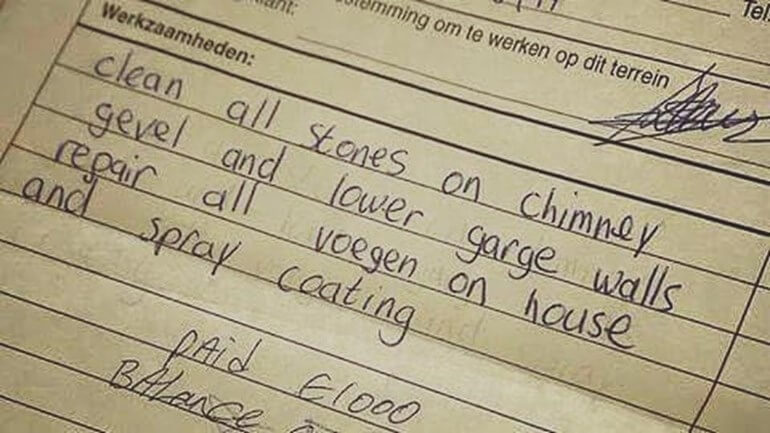 Tel.
stemming om te werken op dit terrein
Werkzaamheden:
clean all stones on chimney
gevel and lower garge walls
repair all voegen on house
and spray coating
paid €1000
Balance